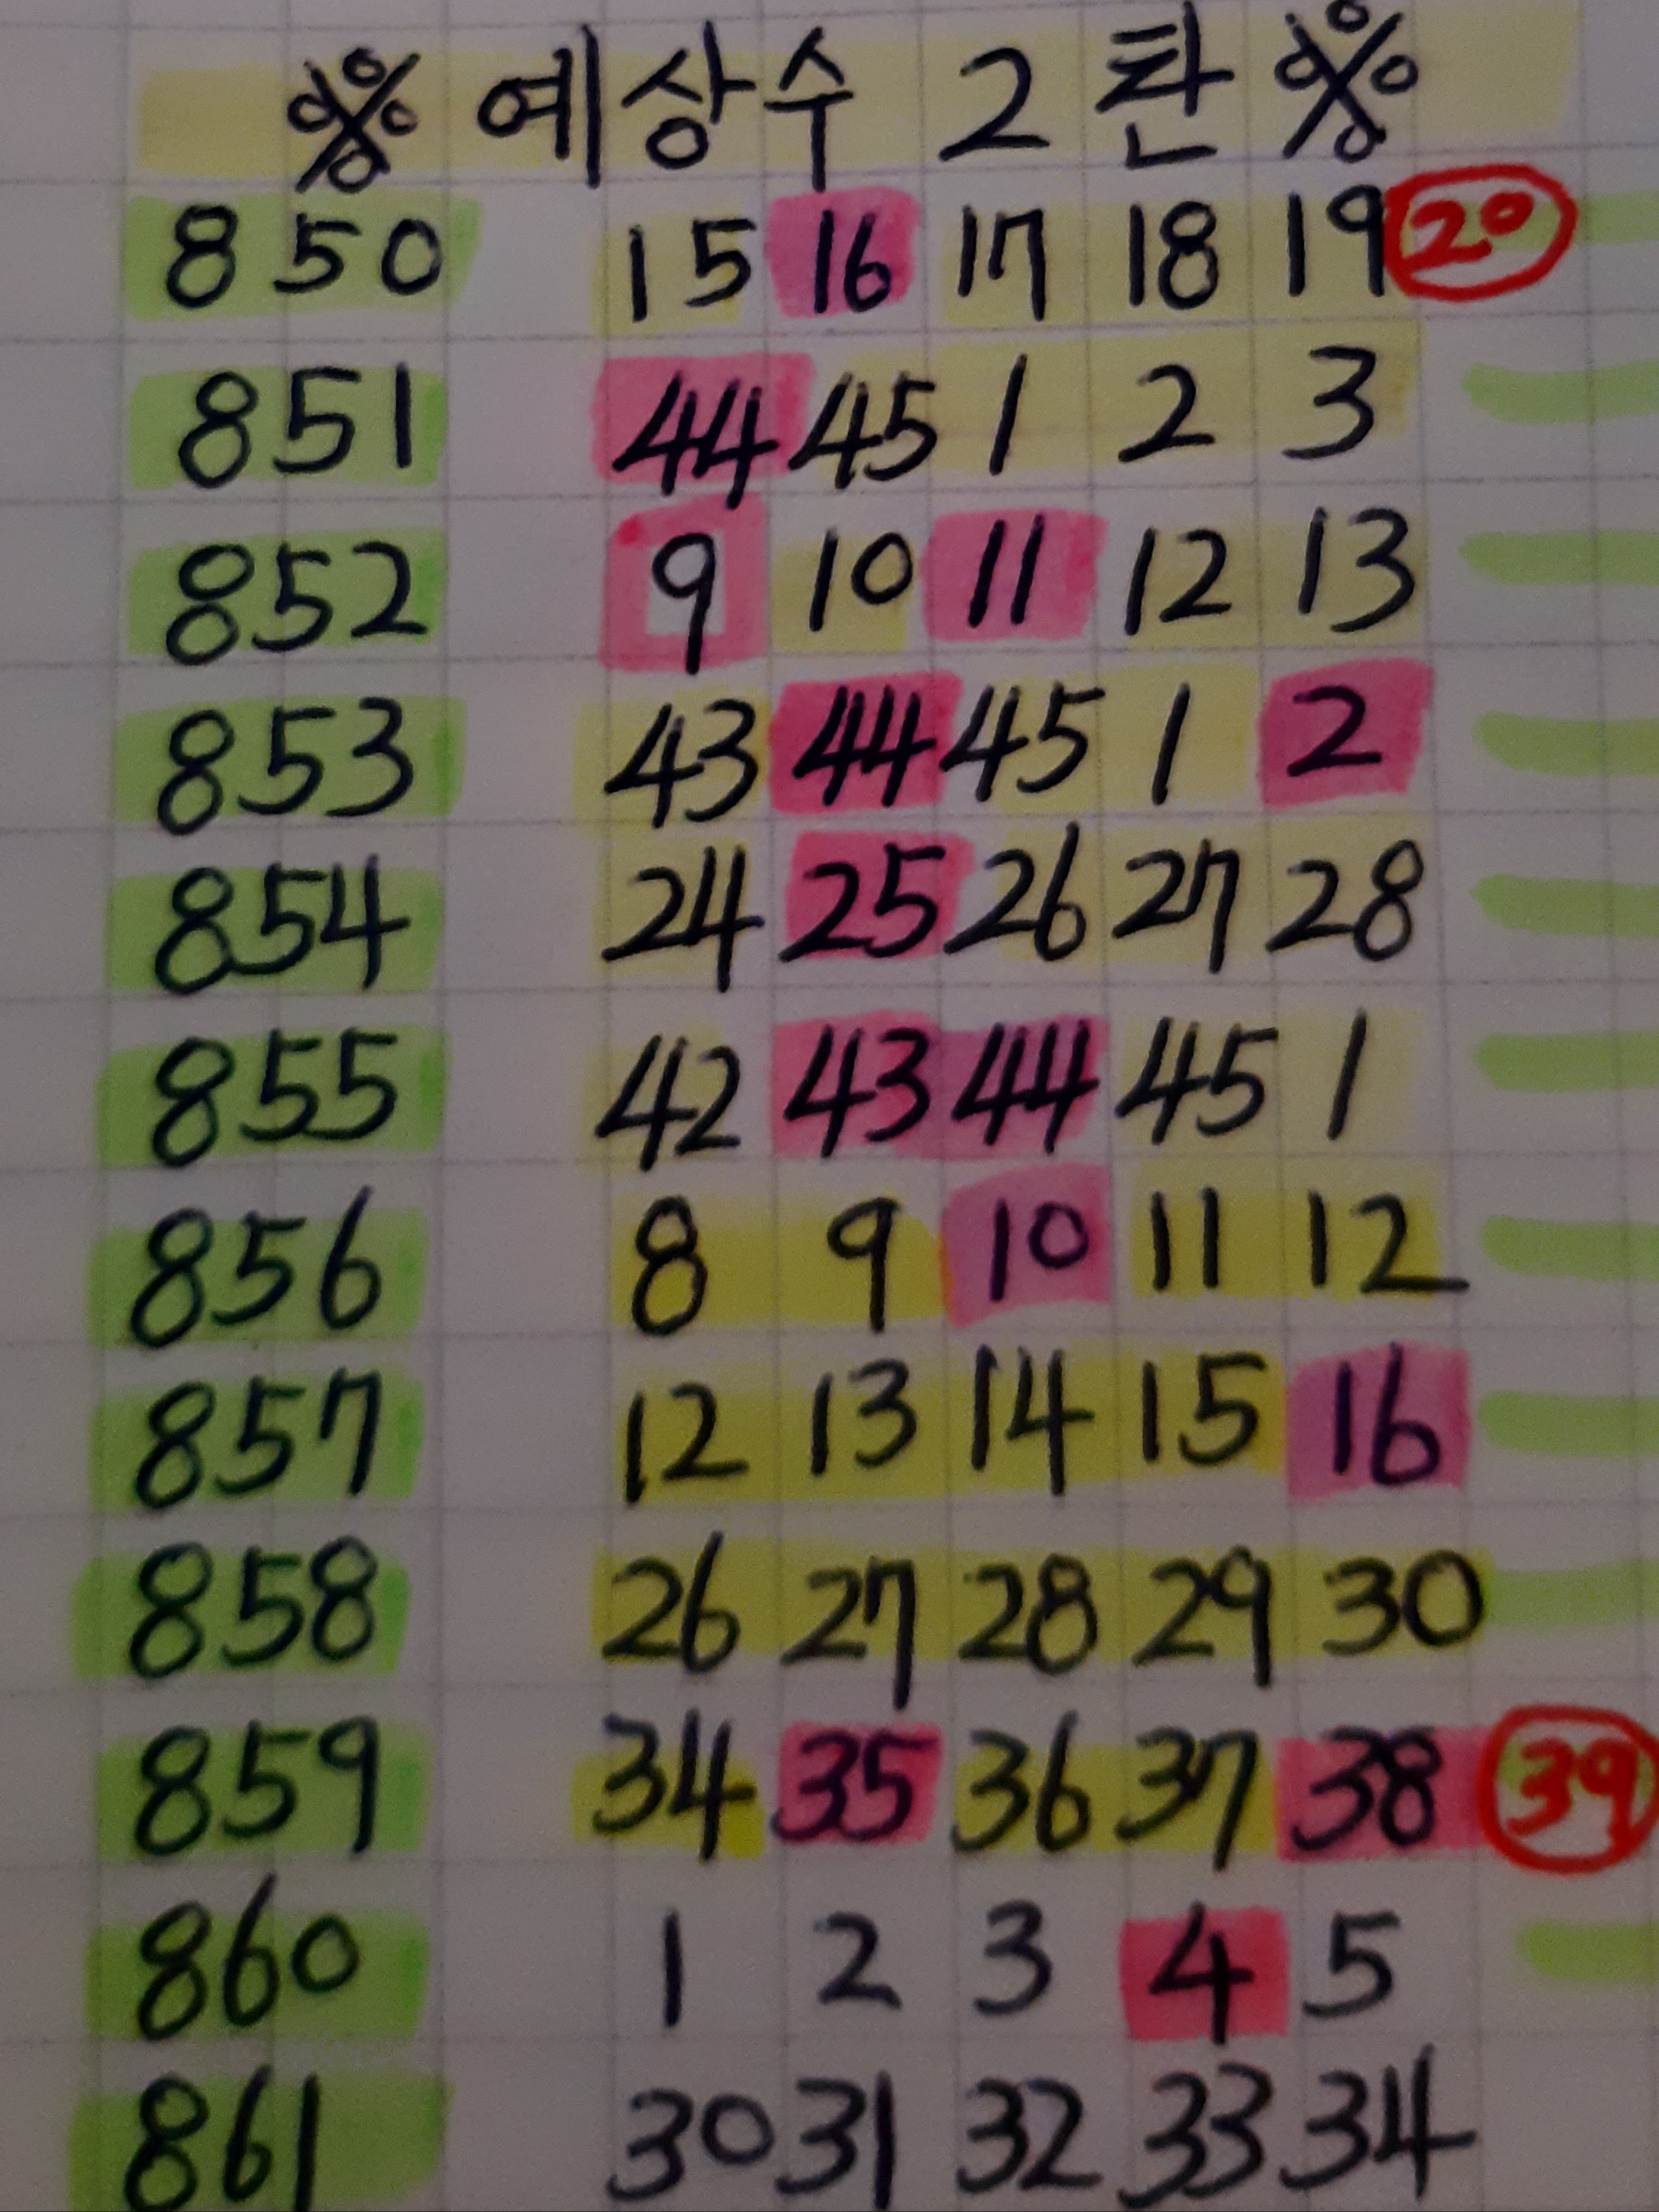 ※ 예상수 2탄 ※
850 15 16 17 18 19 20
851 44 45 1 2 3
852 9 10 11 12 13
853 43 44 45 1 2
854 24 25 26 27 28
855 42 43 44 45 1
856 8 9 10 11 12
857 12 13 14 15 16
858 26 27 28 29 30
859 34 35 36 37 38 39
860 1 2 3 4 5
861 30 31 32 33 34